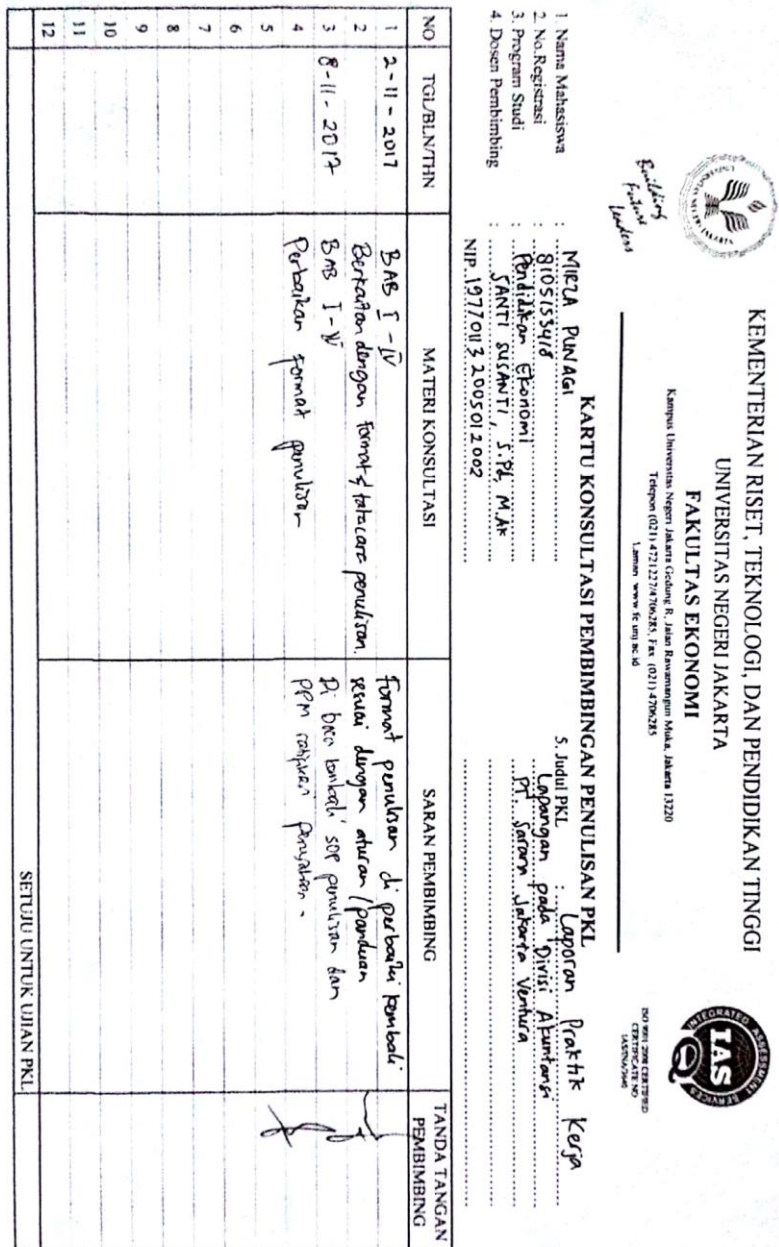 KEMENTERIAN RISET, TEKNOLOGI, DAN PENDIDIKAN TINGGI
UNIVERSITAS NEGERI JAKARTA
FAKULTAS EKONOMI
Kampus Universitas Negeri Jakarta Gedung R, Jalan Rawamangun Muka, Jakarta 13220
Telepon (021) 4721227/4706285, Fax: (021) 4706285
Laman: www.fe.unj.ac.id
UNIVERSITAS NEGERI JAKARTA
Building
Future
Leaders
INTEGRATED ASSESSMENT SERVICES
IAS
ISO 9001:2008 CERTIFIED
CERTIFICATE NO
KARTU KONSULTASI PEMBIMBINGAN PENULISAN PKL
1. Nama Mahasiswa : MIRZA PUNAGI
2. No.Registrasi : 8105153418
3. Program Studi : Pendidikan Ekonomi
4. Dosen Pembimbing : SANTI SUSANTI, S.Pd, M.Ak
NIP. 19770113 2005012002
5. Judul PKL : Laporan Praktik Kerja
Lapangan pada Divisi Akuntansi
PT. Sarana Jakarta Ventura
NO TGL/BLN/THN MATERI KONSULTASI SARAN PEMBIMBING TANDA TANGAN PEMBIMBING
1 2-11-2017 BAB I - IV Format penulisan di perbaiki kembali
2 Berkaitan dengan Format & tatacara penulisan. sesuai dengan aturan / panduan
3 8-11-2017 BAB I - IV Di baca kembali SOP penulisan dan
4 Perbaikan Format penulisan PPM
5
6
7
8
9
10
11
12
SETUJU UNTUK UJIAN PKL